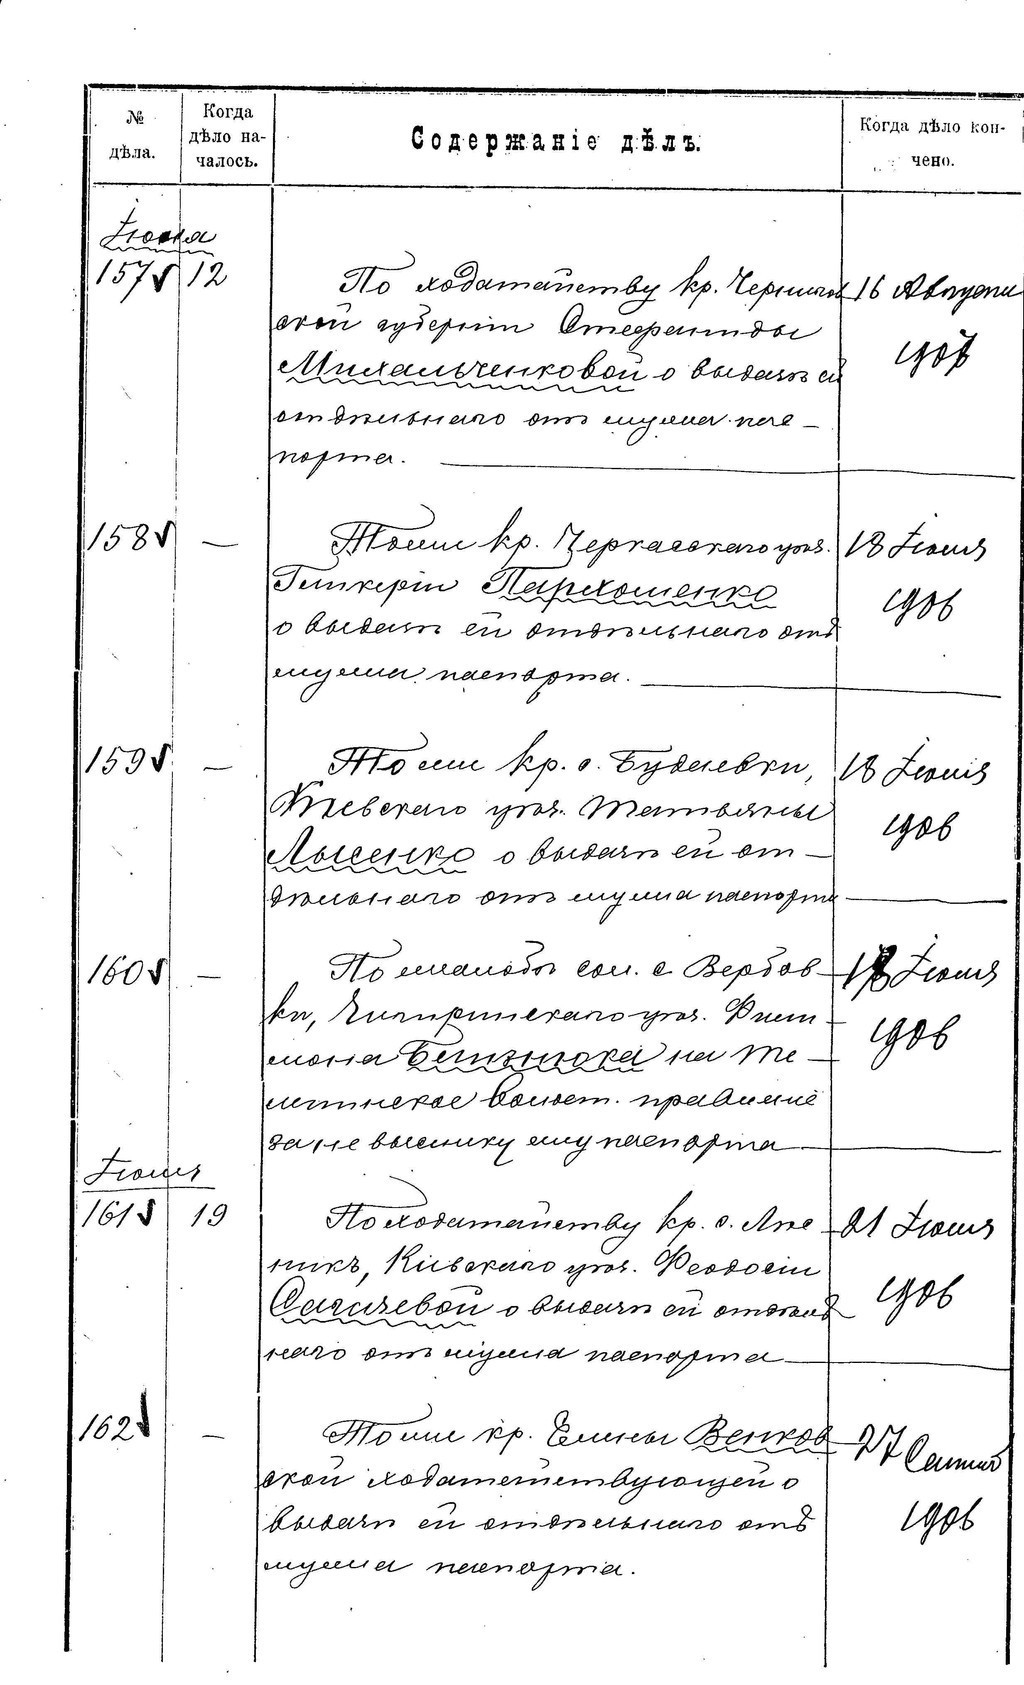 № дѣла.
Когда дѣло на-
чалось.
Содержаніе дѣлъ.
Когда дѣло кон-
чено.
Іюня
157 12 По ходатайству кр. Чернигов 16 Августа
ской губерніи Стефаниды 1907
Михальченковой о выдачѣ ей
отдѣльнаго отъ мужа пас-
порта.
158 — Тоже кр. Черкасскаго уѣз. 18 Іюня
Гликеріи Пархоменко 1906
о выдачѣ ей отдѣльнаго отъ
мужа паспорта.
159 — То же кр. с. Будаевки, 18 Іюня
Кіевскаго уѣз. Татьяны 1906
Лысенко о выдачѣ ей от-
дѣльнаго отъ мужа паспорта
160 — По жалобѣ сол. с. Вербов- 18 Іюня
ки, Чигиринскаго уѣз. 1906
на
волост. правленіе
за не высылку ему паспорта
Іюня
161 19 По ходатайству кр. с. 21 Іюня
Кіевскаго уѣз. Феодосіи 1906
о выдачѣ ей отдѣль
наго отъ мужа паспорта
162 — Тоже кр. Елены Венков 27 Сентяб
ской ходатайствующей о
выдачѣ ей отдѣльнаго отъ 1906
мужа паспорта.